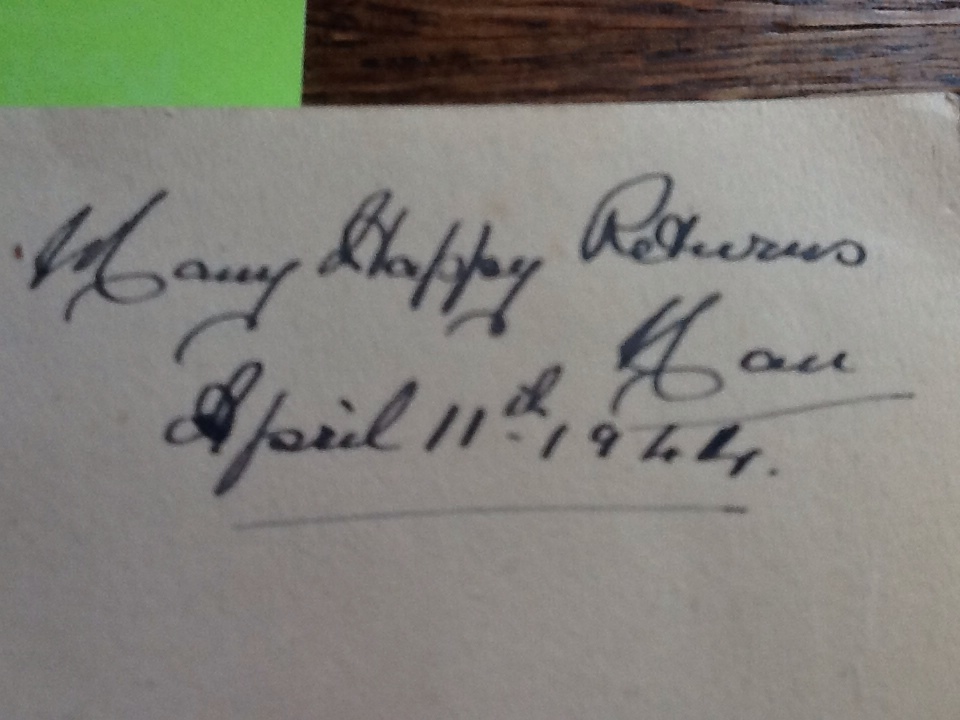 Many Happy Returns
Nan
April 11th 1944.